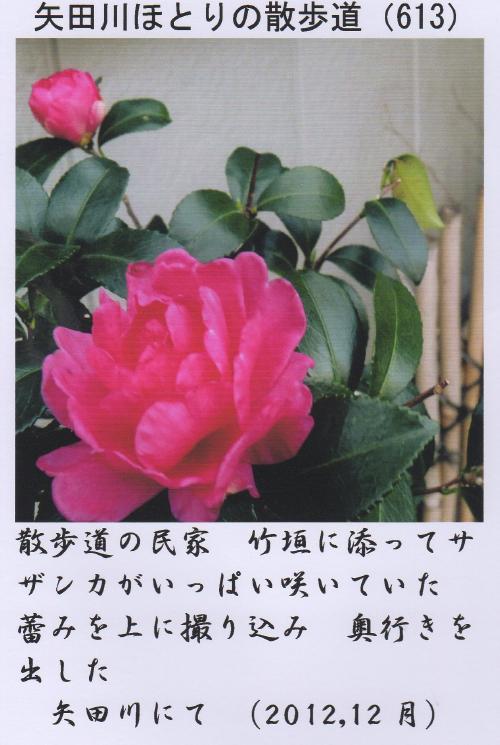 矢田川ほとりの散歩道（613）
散歩道の民家　竹垣に添ってサ
ザンカがいっぱい咲いていた
蕾みを上に撮り込み　奥行きを
出した
矢田川にて　（2012,12月）